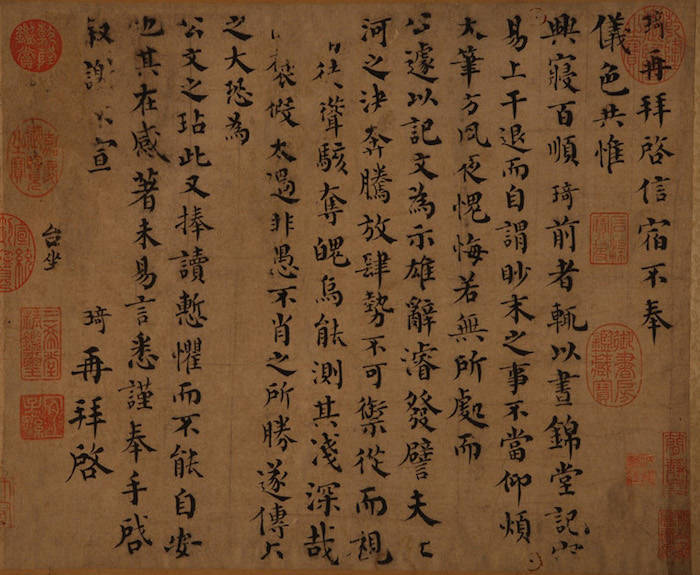 琦再拜啓信宿不奉
儀色共惟
興寢百順琦前者輒以晝錦堂記容
易上干退而自謂眇末之事不當仰煩
大筆方夙夜愧悔若無所處而
公遽以記文為示雄辭濬發譬夫
河之決奔騰放肆勢不可禦從而視
徒聳駭奪魄烏能測其淺深哉
褒假太過非愚不肖之所勝遂傳
之大恐為
公文之玷此又捧讀慙懼而不能自安
也其在感著未易言悉謹奉手啓
敘謝不宣 琦再拜啓
台坐